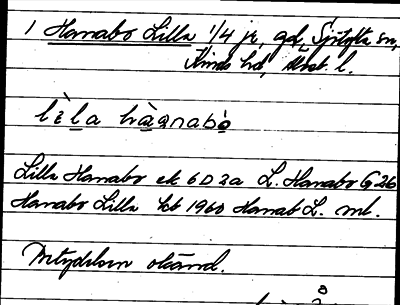 1 Hanabo Lilla 1/4 je, gd, Sjötofta sn,
Kinds hd, Älvsb. l.
lὲla hànabò
Lilla Hanabo ek 6D2a L. Hanabo G26
Hanabo Lilla kb 1960 Hanab L. ml.
Betydelsen okänd.